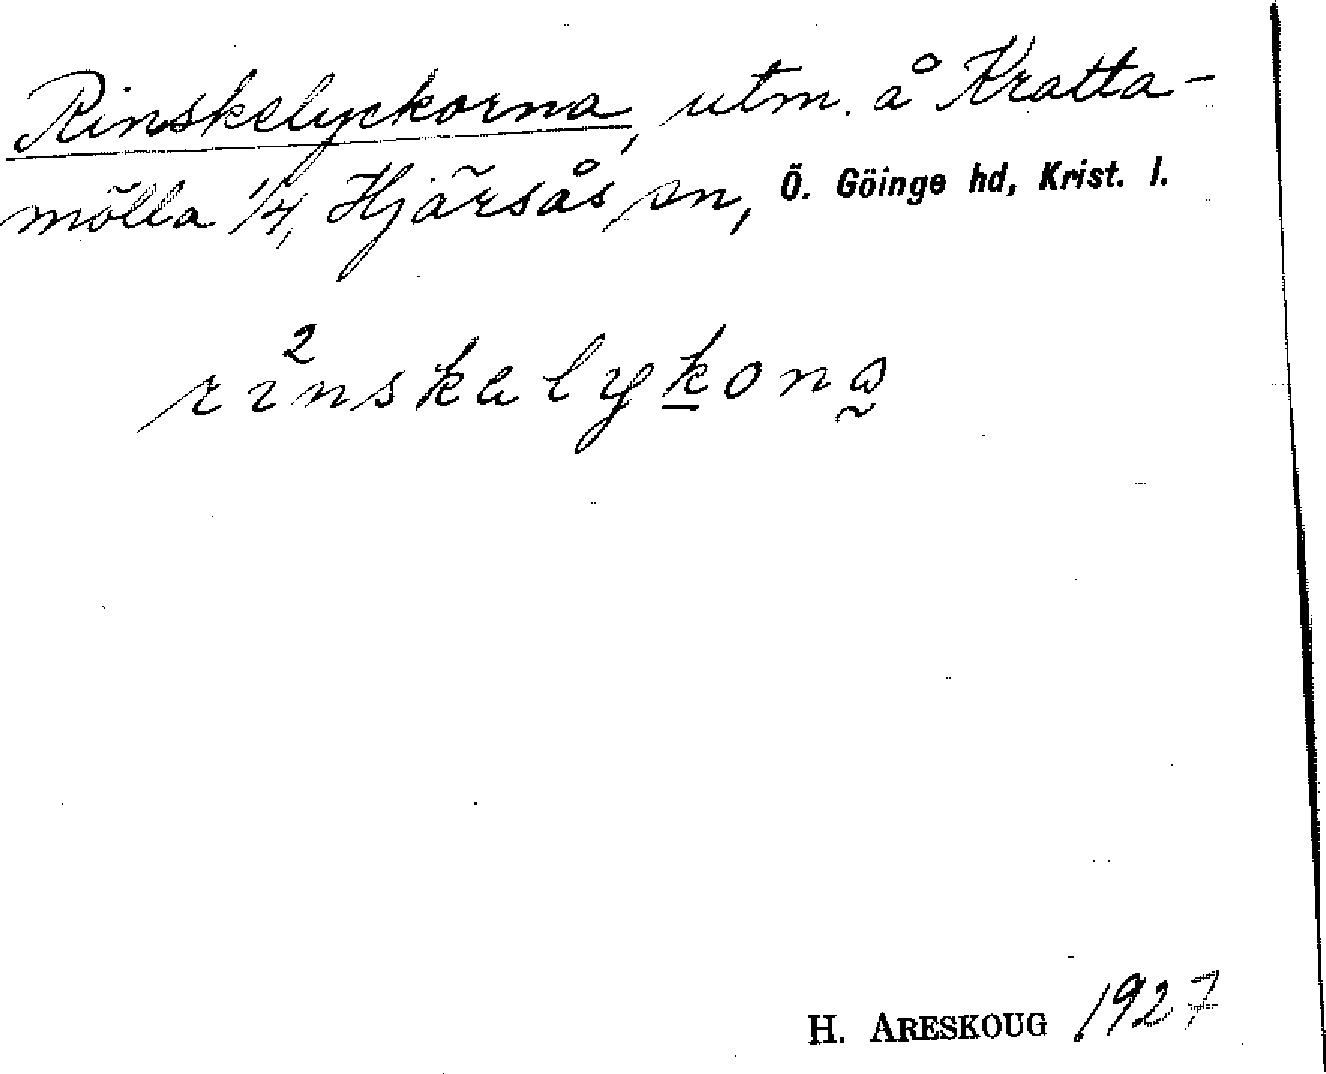 Rinskelyckorna, utm. å Kratta-
mölla 1/4, Hjärsås sn, Ö. Göinge hd, Krist. l.
2
rinskalykona
H. ARESKOUG 1927